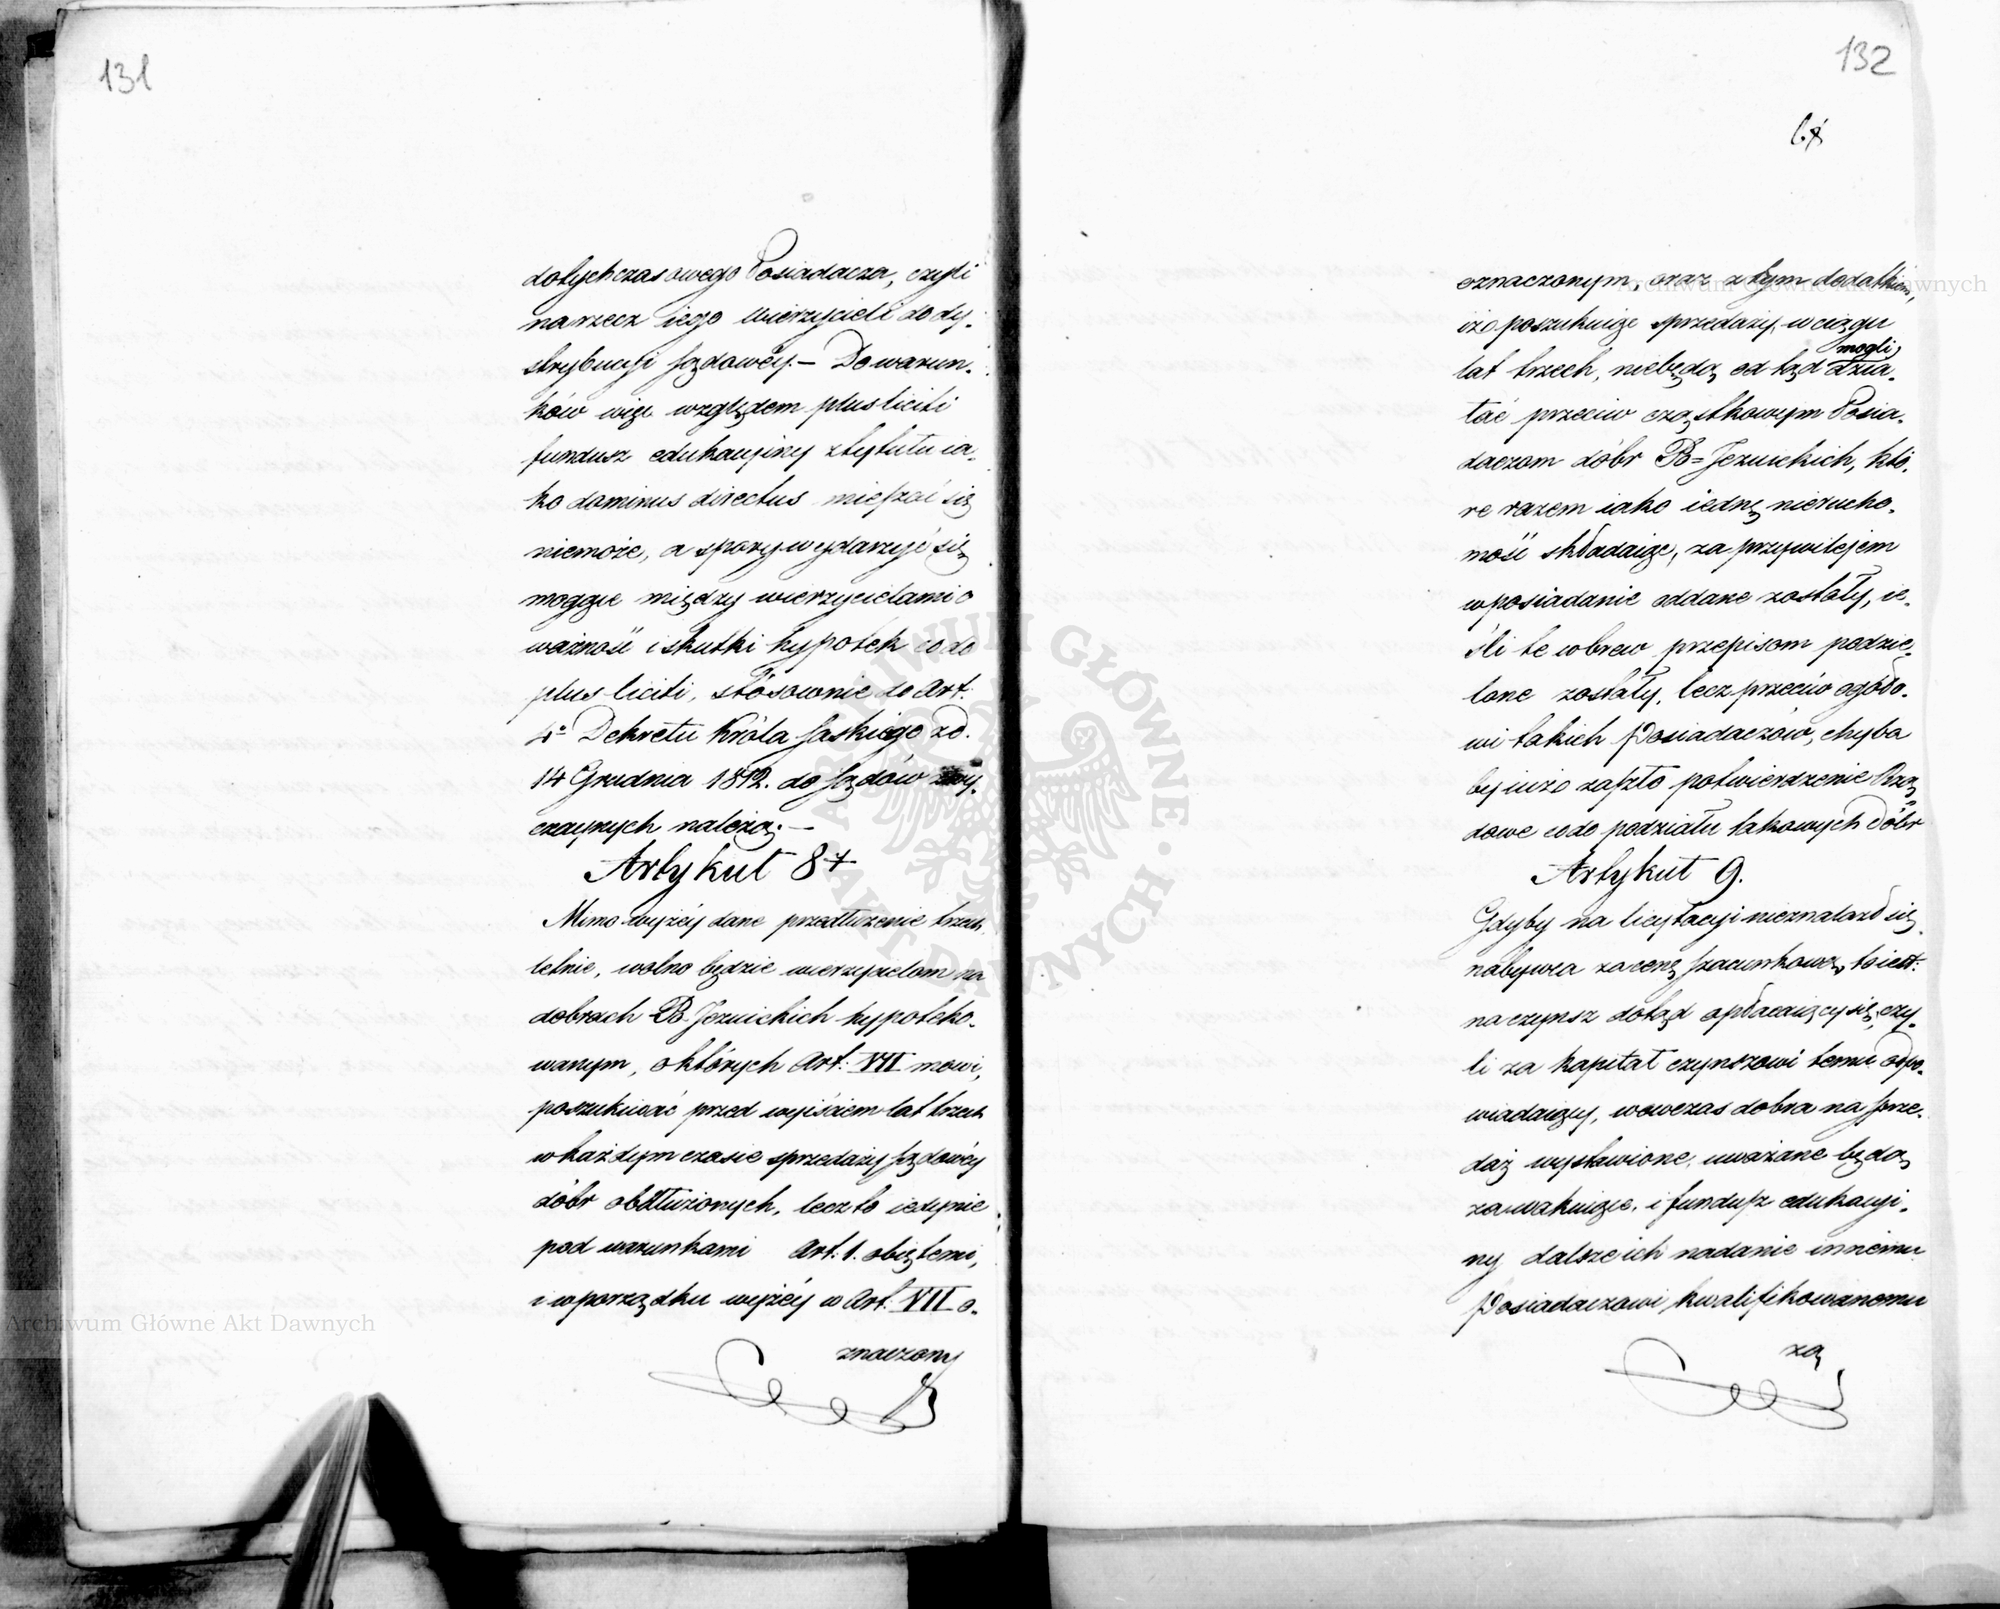 131
dotychczasowego Posiadacza, czyli
na rzecz iego wierzycieli do dy-
strybucyi sądowéy. – Do warun-
ków więc względem plus liciti
fundusz edukacyiny z tytułu ia-
ko dominus directus mięszać się
niemoże, a spory wydarzyć się
mogące między wierzycielami o
ważność i skutki hypotek co do
plus liciti, stósownie do Art:
4º Dekretu Króla Saskiego z d.
14 Grudnia 1812. do Sądów zwy-
czaynych należą. –
Artykuł 8
Mimo wyżéy dane przedłużenie trzech
letnie, wolno będzie wierzycielom na
dobrach Po-Jezuickich hypoteko-
wanym, o których Art: VII mowi,
poszukiwać przed wyiściem lat trzech
w każdym czasie sprzedaży sądowéy
dóbr obdłużonych, lecz to iedynie
pod warunkami Art: 1. obiętemi,
i w porządku wyżéy w Art: VII o-
znaczony
132
oznaczonym, oraz z tym dodatkiem,
iż poszukuiąc sprzedaży w ciągu
lat trzech, niebędą od tąd mogli dzia-
łać przeciw cząstkowym Posia-
daczom dóbr Po=Jezuickich, któ-
re razem iako iedną nierucho-
mość składaiąc, za przywilejem
w posiadanie oddane zostały, ie-
śli te wbrew przepisom podzie-
lone zostały, lecz przeciw ogóło-
wi takich Posiadaczów, chyba
by iuż zaszło potwierdzenie Rzą-
dowe co do podziału takowych Dóbr
Artykuł 9.
Gdyby na licytacyi nieznalazł się
nabywca za cenę szacunkową, to iest:
na czynsz dotąd opłacaiący się, czy-
li za kapitał czynszowi temu odpo-
wiadaiący, wówczas dobra na sprze-
daż wystawione, uważane będą
za wakuiące, i fundusz edukacyi-
ny dalsze ich nadanie innemu
Posiadaczowi kwalifikowanemu
za
Archiwum Główne Akt Dawnych
Archiwum Główne Akt Dawnych
ARCHIWUM GŁÓWNE · AKT DAWNYCH ·